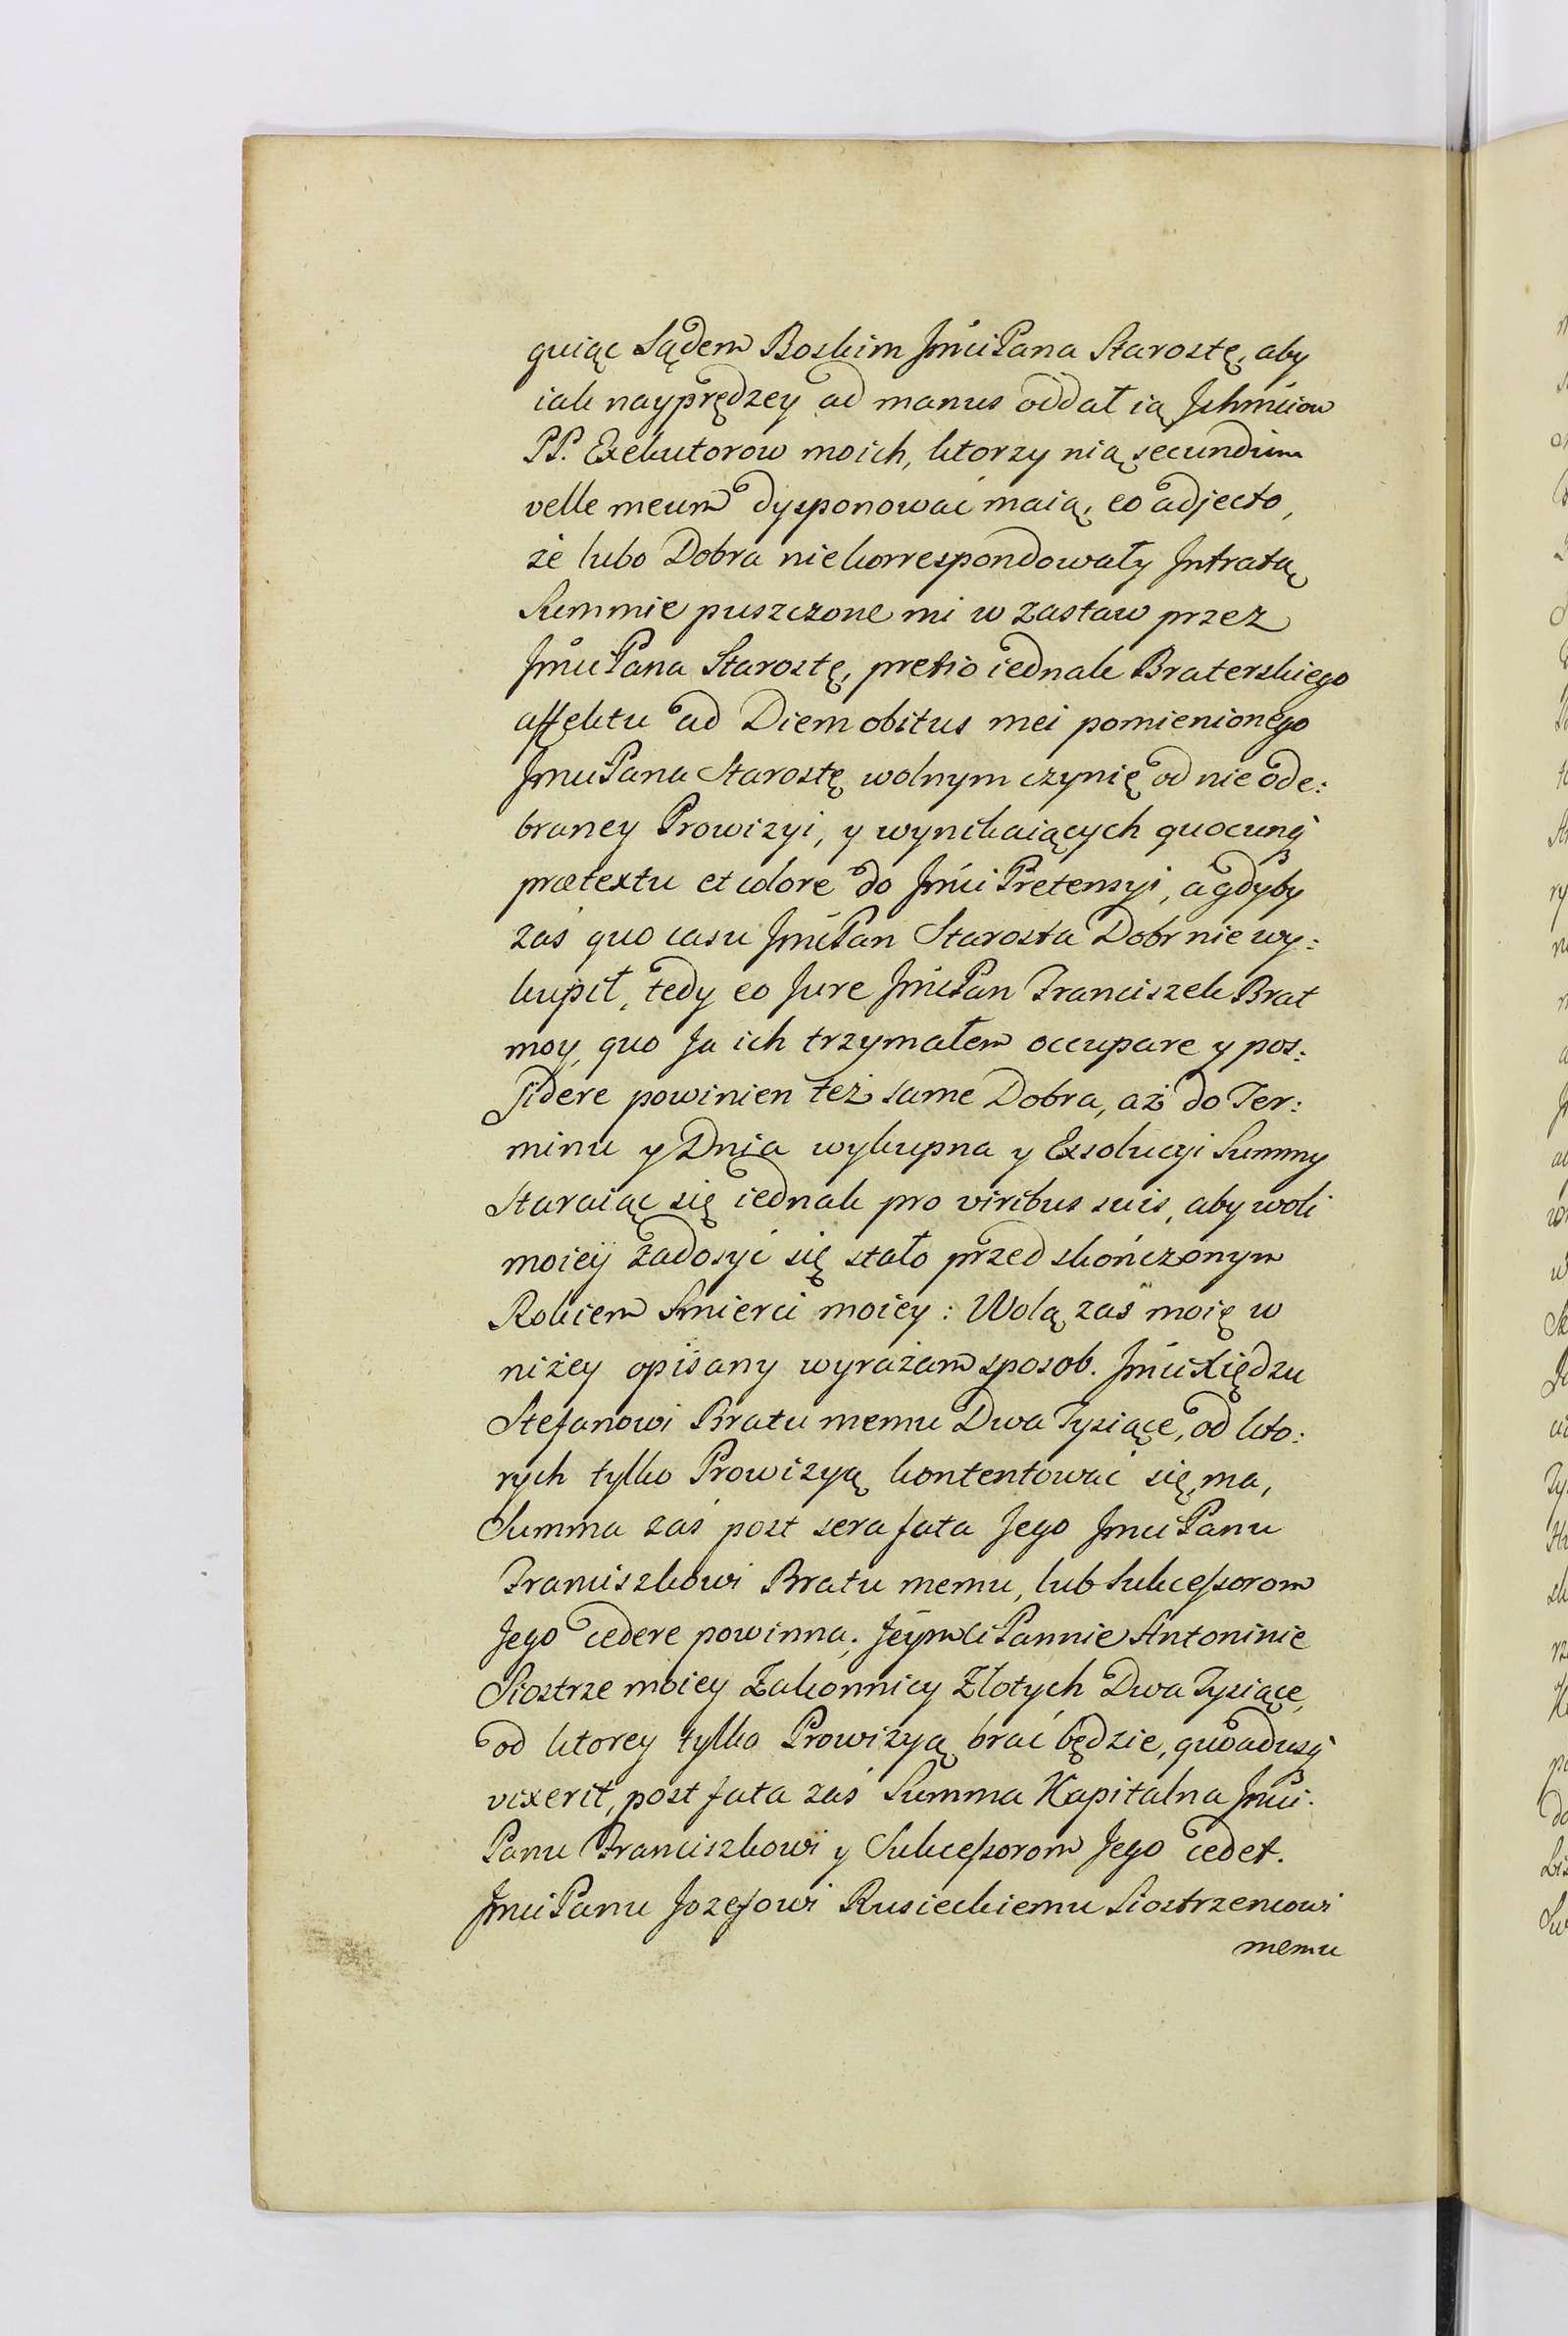 guiąc Sądem Boskim JmciPana Starostę, aby
iak nayprędzey ad manus oddał ią Jchmciow
PP. Exekutorow moich, ktorzy nią secundum
velle meum dysponować maią, eo adjecto,
że lubo Dobra niekorrespondowały Jntratą
Summie puszczone mi w zastaw przez
JmciPana Starostę, pretio iednak Braterskiego
affektu ad Diem obitus mei pomienionego
JmciPana Starostę wolnym czynię od nie ode:
braney Prowizyi, y wynikaiących quocunq́
prætextu et colore do Jmci Pretensyi, a gdyby
zaś quo casu JmćPan Starosta Dobr nie wy:
kupił, tedy eo Jure JmćPan Franciszek Brat
moy, quo Ja ich trzymałem occupare y pos:
sidere powinien też same Dobra, aż do Ter:
minu y Dnia wykupna y Exsolucyi Summy
Staraiąc się iednak pro viribus suis, aby woli
moiey zadosyć się stało przed skończonym
Rokiem Smierci moiey: Wolą zaś moię w
niżey opisany wyrażam sposob. JmciXiędzu
Stefanowi Bratu memu Dwa Tysiące, od kto:
rych tylko Prowizyą kontentować się ma,
Summa zaś post sera fata Jego JmciPanu
Franciszkowi Bratu memu, lub Sukcessorom
Jego cedere powinna; JeymciPannie Antoninie
Siostrze moiey Zakonnicy Złotych Dwa Tysiące,
od ktorey tylko Prowizyą brać będzie, quoadusq́
vixerit, post fata zaś Summa Kapitalna Jmci
Panu Franciszkowi y Sukcessorom Jego cedet.
JmciPanu Jozefowi Rusieckiemu Siostrzencowi
memu